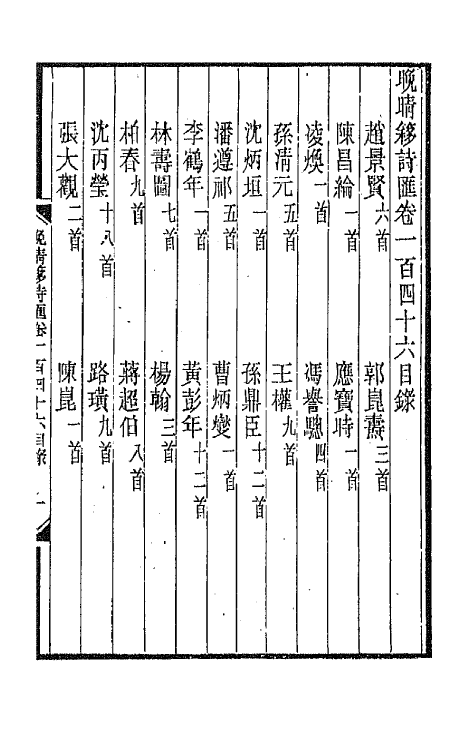 晚晴簃詩匯卷一百四十六目錄
趙景賢六首　郭崑燾三首
陳昌綸一首　應寶時一首
凌煥一首　馮譽驄四首
孫清元五首　王權九首
沈炳垣一首　孫鼎臣十二首
潘遵祁五首　曹炳燮一首
李鶴年一首　黃彭年十二首
林壽圖七首　楊翰三首
柏春九首　蔣超伯八首
沈丙瑩十八首　路璜九首
張大觀二首　陳崑一首
晚晴簃詩匯卷一百四十六目錄　一